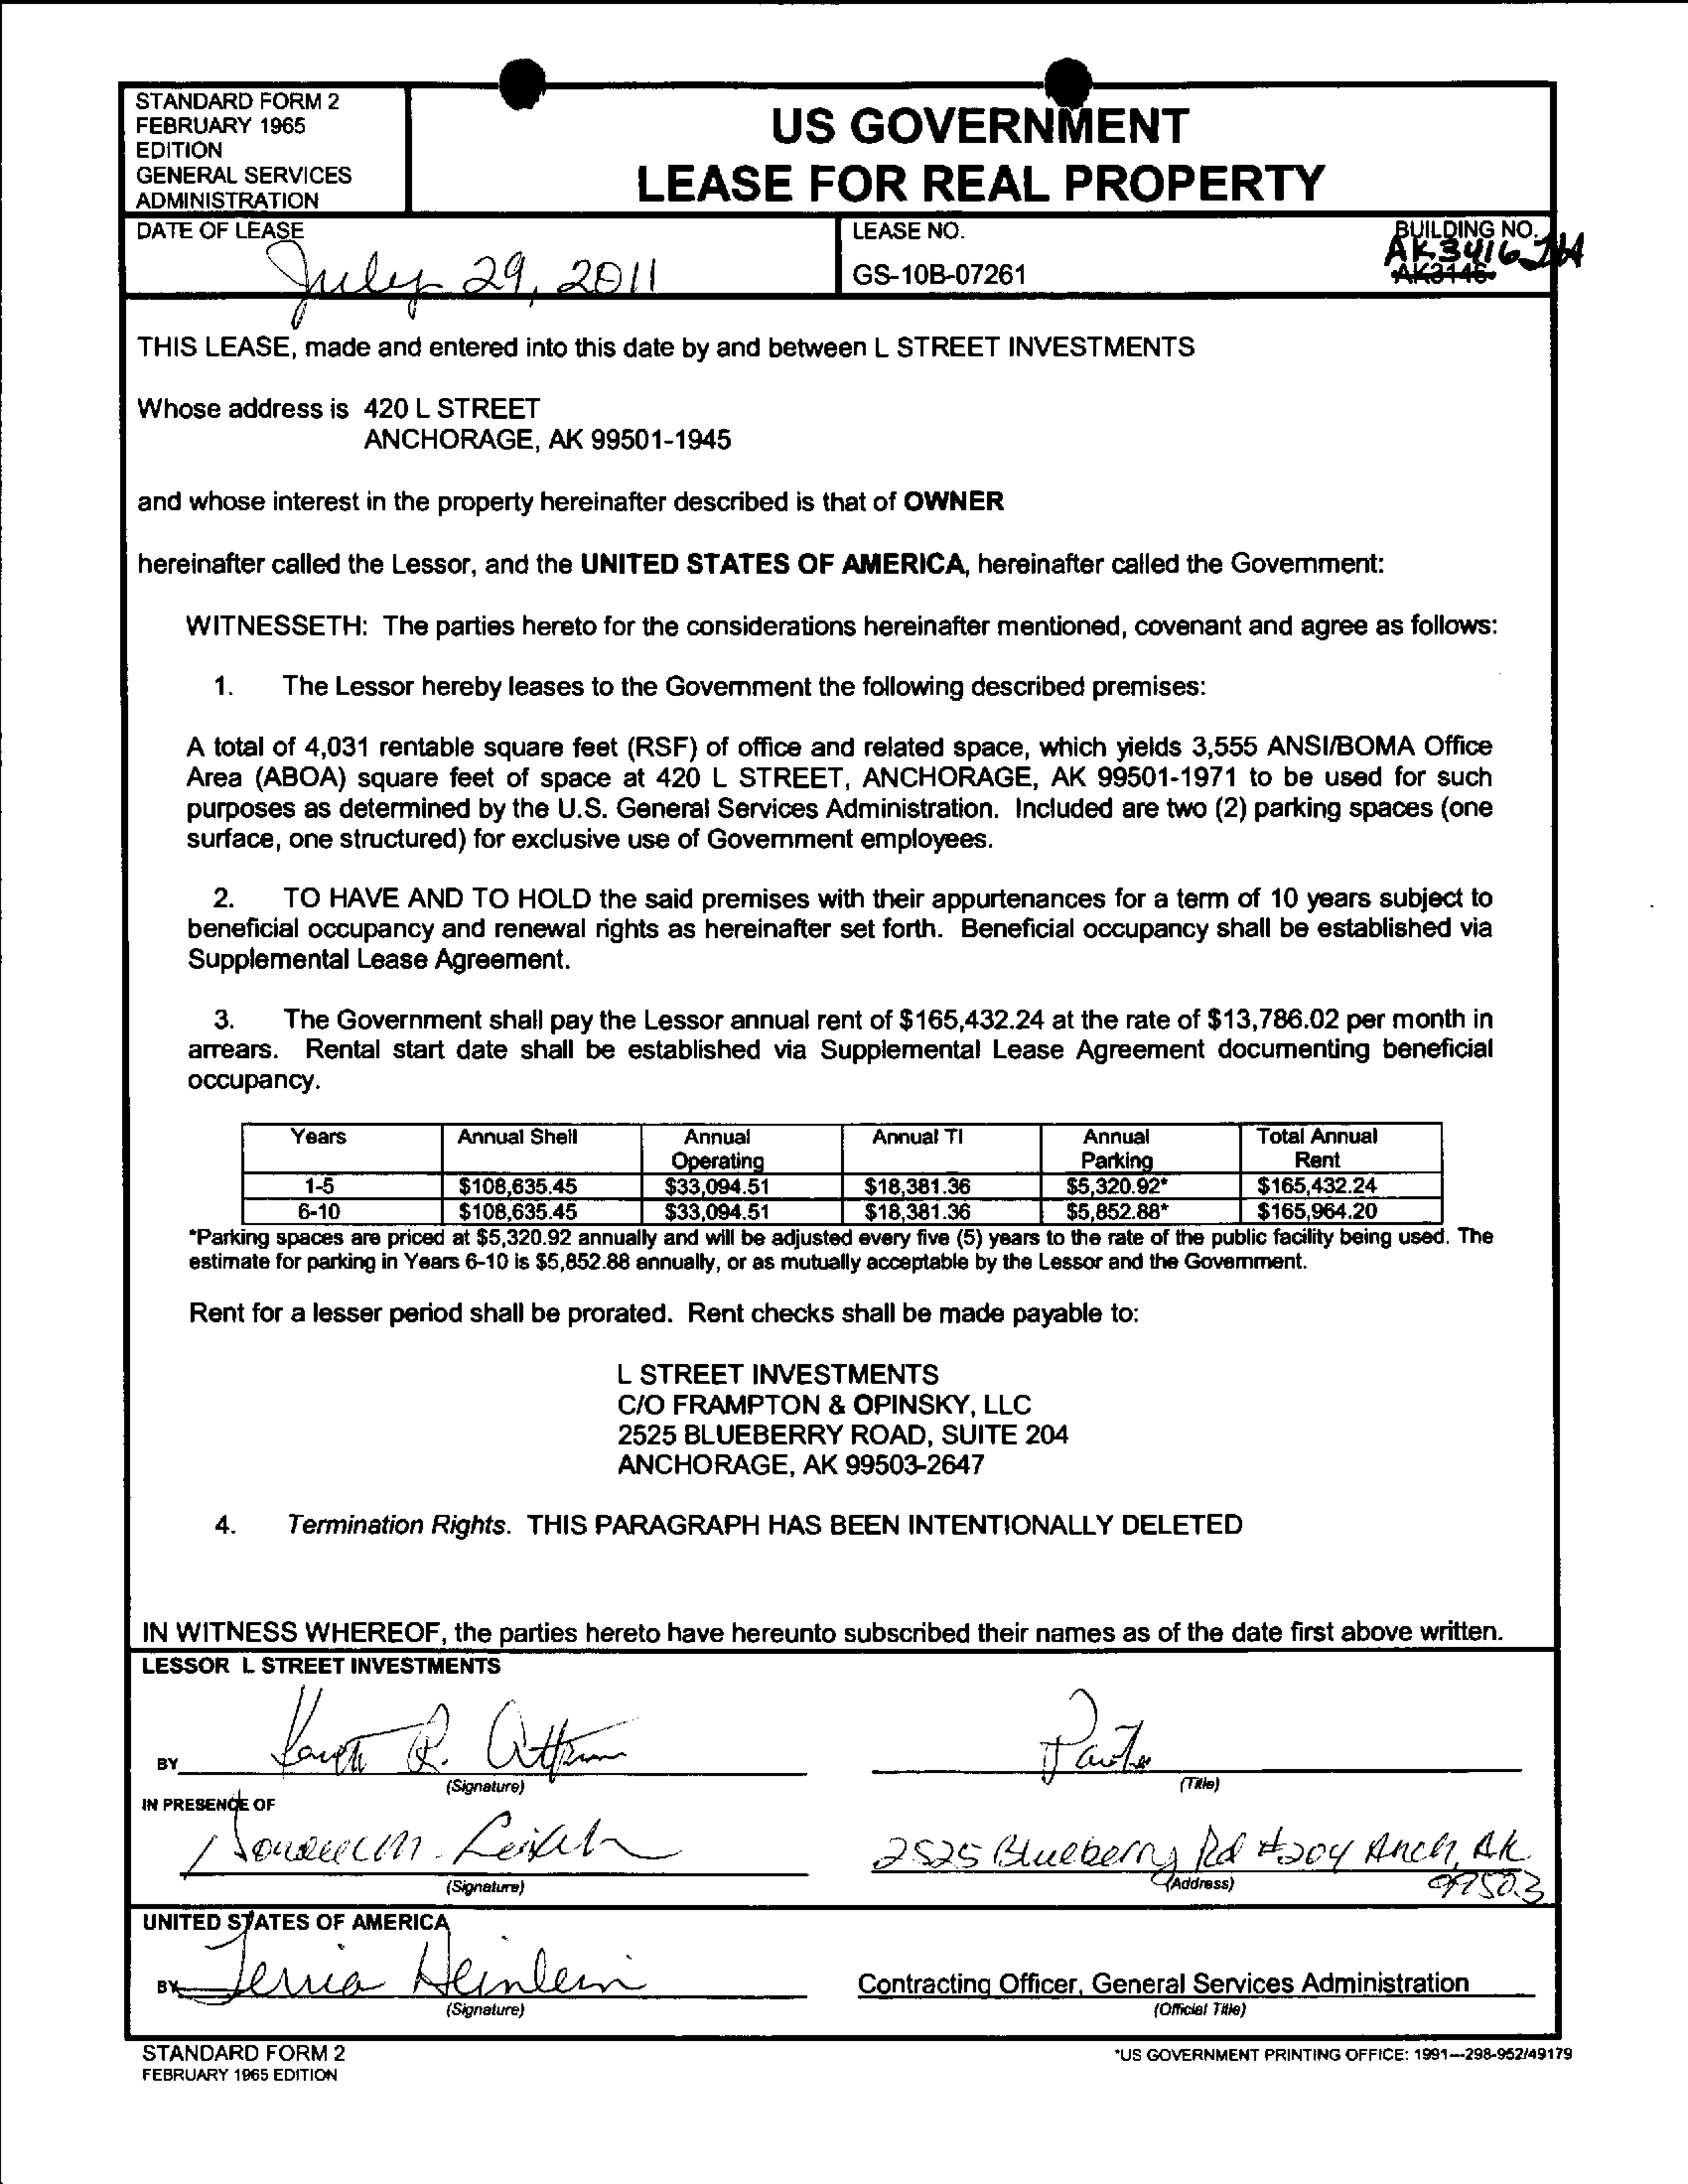 STANDARD FORM 2
FEBRUARY 1965
EDITION
GENERAL SERVICES
ADMINISTRATION
US GOVERNMENT
LEASE FOR REAL PROPERTY
DATE OF LEASE
July 29, 2011
LEASE NO.
GS-10B-07261
BUILDING NO.
AK3416
THIS LEASE, made and entered into this date by and between L STREET INVESTMENTS
Whose address is 420 L STREET
ANCHORAGE, AK 99501-1945
and whose interest in the property hereinafter described is that of OWNER
hereinafter called the Lessor, and the UNITED STATES OF AMERICA, hereinafter called the Government:
WITNESSETH: The parties hereto for the considerations hereinafter mentioned, covenant and agree as follows:
1. The Lessor hereby leases to the Government the following described premises:
A total of 4,031 rentable square feet (RSF) of office and related space, which yields 3,555 ANSI/BOMA Office
Area (ABOA) square feet of space at 420 L STREET, ANCHORAGE, AK 99501-1971 to be used for such
purposes as determined by the U.S. General Services Administration. Included are two (2) parking spaces (one
surface, one structured) for exclusive use of Government employees.
2. TO HAVE AND TO HOLD the said premises with their appurtenances for a term of 10 years subject to
beneficial occupancy and renewal rights as hereinafter set forth. Beneficial occupancy shall be established via
Supplemental Lease Agreement.
3. The Government shall pay the Lessor annual rent of $165,432.24 at the rate of $13,786.02 per month in
arrears. Rental start date shall be established via Supplemental Lease Agreement documenting beneficial
occupancy.
Years Annual Shell Annual Operating Annual TI Annual Parking Total Annual Rent
1-5 $108,635.45 $33,094.51 $18,381.36 $5,320.92* $165,432.24
6-10 $108,635.45 $33,094.51 $18,381.36 $5,852.88* $165,964.20
*Parking spaces are priced at $5,320.92 annually and will be adjusted every five (5) years to the rate of the public facility being used. The
estimate for parking in Years 6-10 is $5,852.88 annually, or as mutually acceptable by the Lessor and the Government.
Rent for a lesser period shall be prorated. Rent checks shall be made payable to:
L STREET INVESTMENTS
C/O FRAMPTON & OPINSKY, LLC
2525 BLUEBERRY ROAD, SUITE 204
ANCHORAGE, AK 99503-2647
4. Termination Rights. THIS PARAGRAPH HAS BEEN INTENTIONALLY DELETED
IN WITNESS WHEREOF, the parties hereto have hereunto subscribed their names as of the date first above written.
LESSOR L STREET INVESTMENTS
BY
(Signature)
Partner
(Title)
IN PRESENCE OF
(Signature)
2525 Blueberry Rd #204 Anch, AK
99503
(Address)
UNITED STATES OF AMERICA
BY Terria Heinlein
(Signature)
Contracting Officer, General Services Administration
(Official Title)
STANDARD FORM 2
FEBRUARY 1965 EDITION
*US GOVERNMENT PRINTING OFFICE: 1991---298-952/49179